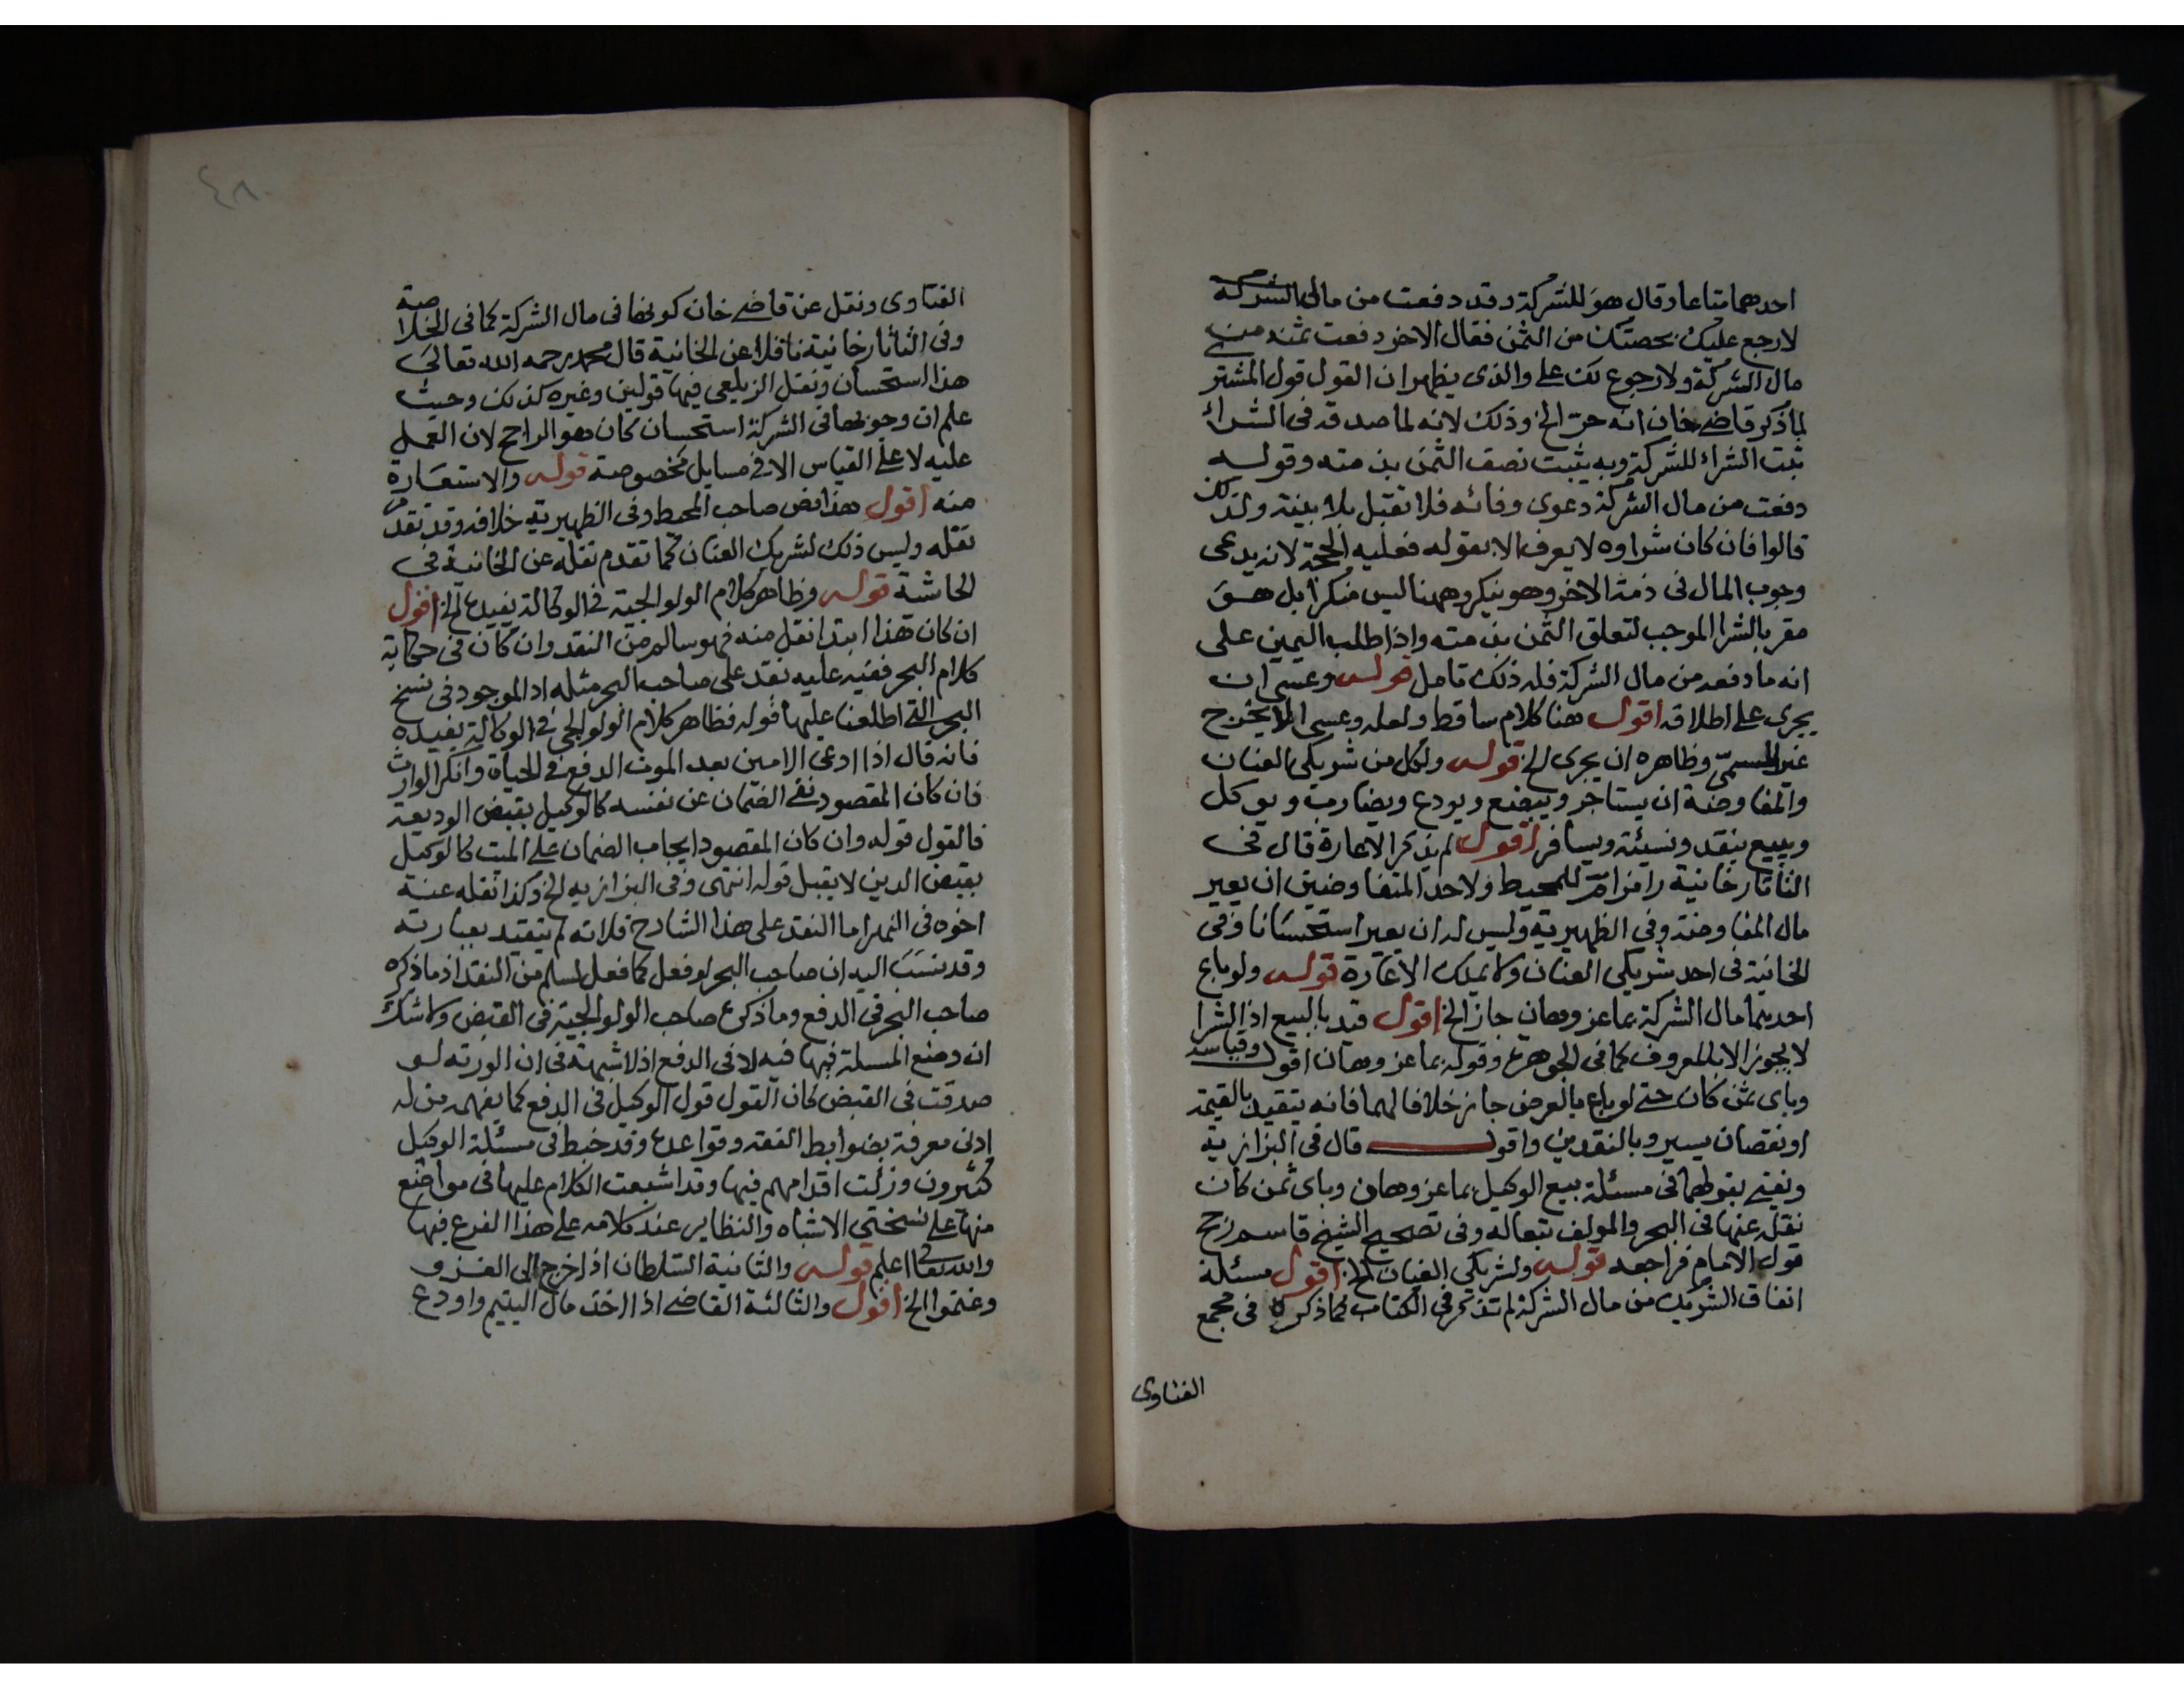 احدهما متاعا وقال هو للشركة وقد دفعت من مالى الشركة
لارجع عليك بحصتك من الثمن فقال الاخر دفعت ثمنه من
مال الشركة ولا رجوع لك على والذى يظهر ان القول قول المشتر
لما ذكر قاضى خان انه حر الخ وذلك لانه لما صدقه فى الشراء
ثبت الشراء للشركة وبه يثبت نصف الثمن بذمته وقوله
دفعت من مال الشركة دعوى وفائه فلا تقبل بلا بينة ولذلك
قالوا فان كان شراوه لا يعرف الا بقوله فعليه الحجة لانه يدعى
وجوب المال فى ذمة الاخر وهو ينكر وههنا ليس منكرا بل هو
مقر بالشرا الموجب لتعلق الثمن بذمته واذا طلب اليمين على
انه ما دفعه من مال الشركة فله ذلك تامل قوله وعسى ان
يجرى على اطلاقه اقول هنا كلام ساقط ولعله وعسى ان لا يخرج
غير المسمى وظاهره ان يجرى الخ قوله ولكل من شريكى العنان
والمفاوضة ان يستاجر ويبضع ويودع ويضارب ويوكل
ويبيع بنقد ونسيئة ويسافر اقول لم يذكر الاعارة قال فى
التاتارخانية رامزا للمحيط ولاحد المتفاوضين ان يعير
مال المفاوضة وفى الظهيرية وليس له ان يعير استحسانا وفى
الخانية فى احد شريكى العنان ولا يملك الاعارة قوله ولو باع
احديهما مال الشركة بما عز وهان جاز الخ اقول قيد بالبيع اذ الشرا
لا يجوز الا بالمعروف كما فى الجوهرة وقوله بما عز وهان اقول وقياسه
وباى ثمن كان حتى لو باع بالعرض جاز خلافا لهما فانه يتقيد بالقيمة
او نقصان يسير وبالنقدين واقول قال فى البزازية
ويفتى بقولهما فى مسئلة بيع الوكيل بما عز وهان وباى ثمن كان
نقله عنها فى البحر والمولف تبعا له وفى تصحيح الشيخ قاسم رجح
قول الامام فراجعه قوله ولشريكى العنان الخ اقول مسئلة
انفاق الشريك من مال الشركة لم تذكر فى الكتاب كما ذكره فى مجمع
الفتاوى
٤٨٠
الفتاوى ونقل عن قاضى خان كونها فى مال الشركة كما فى الخلاصة
وفى التاتارخانية ناقلا عن الخانية قال محمد رحمه الله تعالى
هذا استحسان ونقل الزيلعى فيها قولين وغيره كذلك وحيث
علم ان وجوبها فى الشركة استحسان كان هو الراجح لان العمل
عليه لا على القياس الا فى مسايل مخصوصة قوله والاستعارة
منه اقول هذا نص صاحب المحيط وفى الظهيرية خلافه وقد تقدم
نقله وليس ذلك لشريك العنان كما تقدم نقله عن الخانية فى
الحاشية قوله وظاهر كلام الولوالجية فى الوكالة يفيده الخ اقول
ان كان هذا ابتدا نقل منه فهو سالم من النقد وان كان فى حكاية
كلام البحر ففيه عليه نقد على صاحب البحر مثله اذ الموجود فى نسخ
البحر التى اطلعنا عليها قوله فظاهر كلام الولوالجى فى الوكالة يفيده
فانه قال اذا ادعى الامين بعد الموت الدفع فى الحياة وانكر الوارث
فان كان المقصود نفى الضمان عن نفسه كالوكيل بقبض الوديعة
فالقول قوله وان كان المقصود ايجاب الضمان على الميت كالوكيل
بقبض الدين لا يقبل قوله انتهى وفى البزازيه الخ وكذا نقله عنه
اخوه فى النهر اما النقد على هذا الشارح فلانه لم يتقيد بعبارته
وقد نسب اليه ان صاحب البحر لو فعل كما فعل لسلم من النقد اذ ما ذكره
صاحب البحر فى الدفع وما ذكره صاحب الولوالجية فى القبض ولا شك
ان وضع المسئلة فيها فيه لا فى الدفع اذ لا شبهة فى ان الورثه لو
صدقت فى القبض كان القول قول الوكيل فى الدفع كما يفهمه من له
ادنى معرفة بضوابط الفقه وقواعده وقد خبط فى مسئلة الوكيل
كثيرون وزلت اقدامهم فيها وقد اشبعت الكلام عليها فى مواضع
منها على نسختى الاشباه والنظاير عند كلامه على هذا الفرع فيها
والله تعالى اعلم قوله والثانية السلطان اذا خرج الى الغزو
وغنموا الخ اقول والثالثة القاضى اذا اخذ مال اليتيم واودع